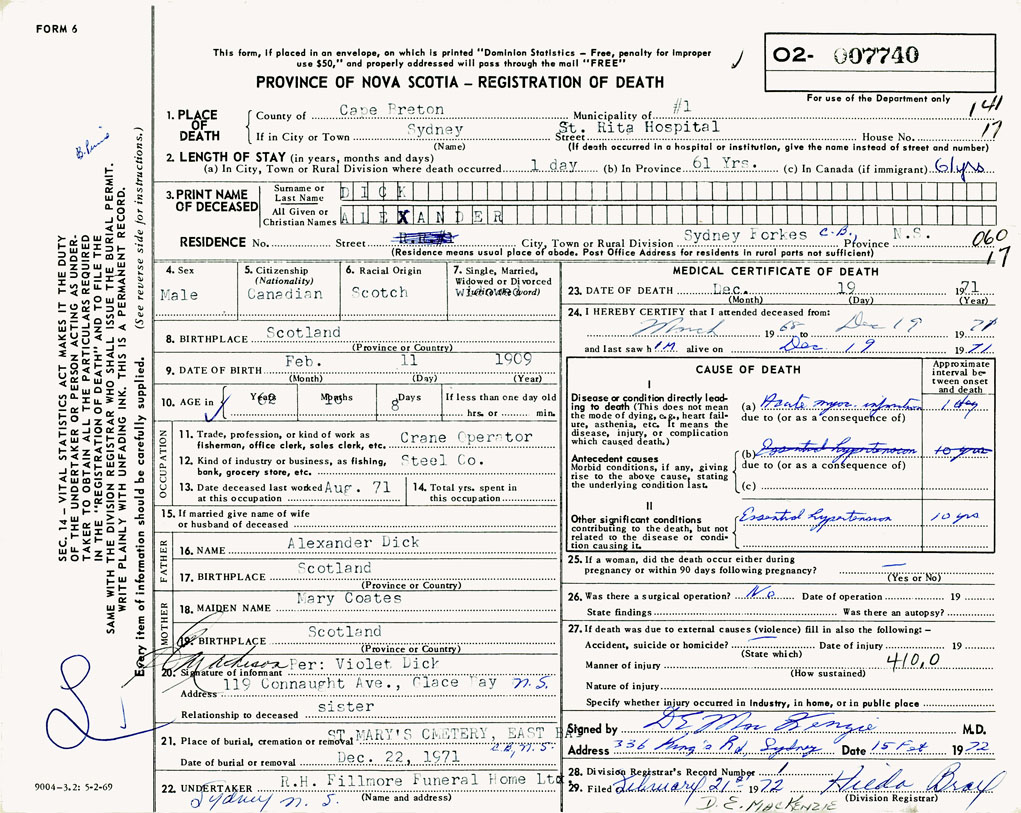 FORM 6
This form, if placed in an envelope, on which is printed "Dominion Statistics – Free, penalty for improper
use $50," and properly addressed will pass through the mail "FREE"
O2- 007740
PROVINCE OF NOVA SCOTIA – REGISTRATION OF DEATH
For use of the Department only
141
17
1. PLACE OF DEATH
County of Cape Breton Municipality of #1
If in City or Town Sydney Street St. Rita Hospital House No.
(Name) (If death occurred in a hospital or institution, give the name instead of street and number)
2. LENGTH OF STAY (in years, months and days)
(a) In City, Town or Rural Division where death occurred 1 day (b) In Province 61 Yrs. (c) In Canada (if immigrant) 61 yrs
3. PRINT NAME OF DECEASED
Surname or Last Name DICK
All Given or Christian Names ALEXANDER
RESIDENCE No. Street City, Town or Rural Division Sydney Forkes C.B., Province N.S.
(Residence means usual place of abode. Post Office Address for residents in rural parts not sufficient)
060
17
4. Sex
Male
5. Citizenship
(Nationality)
Canadian
6. Racial Origin
Scotch
7. Single, Married,
Widowed or Divorced
(write the word)
8. BIRTHPLACE Scotland
(Province or Country)
9. DATE OF BIRTH Feb. 11 1909
(Month) (Day) (Year)
10. AGE in Years Months Days 8
If less than one day old
hrs. or min.
OCCUPATION
11. Trade, profession, or kind of work as Crane Operator
fisherman, office clerk, sales clerk, etc.
12. Kind of industry or business, as fishing, Steel Co.
bank, grocery store, etc.
13. Date deceased last worked Aug. 71
at this occupation
14. Total yrs. spent in
this occupation
15. If married give name of wife
or husband of deceased
FATHER
16. NAME Alexander Dick
17. BIRTHPLACE Scotland
(Province or Country)
MOTHER
18. MAIDEN NAME Mary Coates
19. BIRTHPLACE Scotland
(Province or Country)
Per: Violet Dick
20. Signature of informant
Address 119 Connaught Ave., Glace Bay N.S.
Relationship to deceased sister
21. Place of burial, cremation or removal ST. MARY'S CMETERY, EAST BAY
C.B., N.S.
Date of burial or removal Dec. 22, 1971
22. UNDERTAKER R.H. Fillmore Funeral Home Ltd
(Name and address)
Sydney N.S.
MEDICAL CERTIFICATE OF DEATH
23. DATE OF DEATH Dec. 19 1971
(Month) (Day) (Year)
24. I HEREBY CERTIFY that I attended deceased from:
March 1968 to Dec 19 1971
and last saw him alive on Dec 19 1971
CAUSE OF DEATH
Approximate
interval be-
tween onset
and death
I
Disease or condition directly lead-
ing to death (This does not mean
the mode of dying, e.g., heart fail-
ure, asthenia, etc. It means the
disease, injury, or complication
which caused death.)
(a) Acute myoc. infarction 1 day
due to (or as a consequence of)
Antecedent causes
Morbid conditions, if any, giving
rise to the above cause, stating
the underlying condition last.
(b) Essential hypertension 10 yrs
due to (or as a consequence of)
(c)
II
Other significant conditions
contributing to the death, but not
related to the disease or condi-
tion causing it.
Essential hypertension 10 yrs
25. If a woman, did the death occur either during
pregnancy or within 90 days following pregnancy? —
(Yes or No)
26. Was there a surgical operation? No Date of operation 19
State findings Was there an autopsy?
27. If death was due to external causes (violence) fill in also the following: –
Accident, suicide or homicide? — Date of injury 19
(State which)
Manner of injury 410,0
(How sustained)
Nature of injury
Specify whether injury occurred in industry, in home, or in public place
Signed by D E MacKenzie M.D.
Address 336 King's Rd, Sydney Date 15 Feb 1972
28. Division Registrar's Record Number 1
29. Filed February 21st 1972 Hilda Bray
(Division Registrar)
D. E. MACKENZIE
9004-3.2: 5-2-69
SEC. 14 – VITAL STATISTICS ACT MAKES IT THE DUTY
OF THE UNDERTAKER OR PERSON ACTING AS UNDER-
TAKER TO OBTAIN ALL THE PARTICULARS REQUIRED
IN THE "REGISTRATION OF DEATH" AND TO FILE THE
SAME WITH THE DIVISION REGISTRAR WHO SHALL ISSUE THE BURIAL PERMIT.
WRITE PLAINLY WITH UNFADING INK. THIS IS A PERMANENT RECORD.
Every item of information should be carefully supplied. (See reverse side for instructions.)